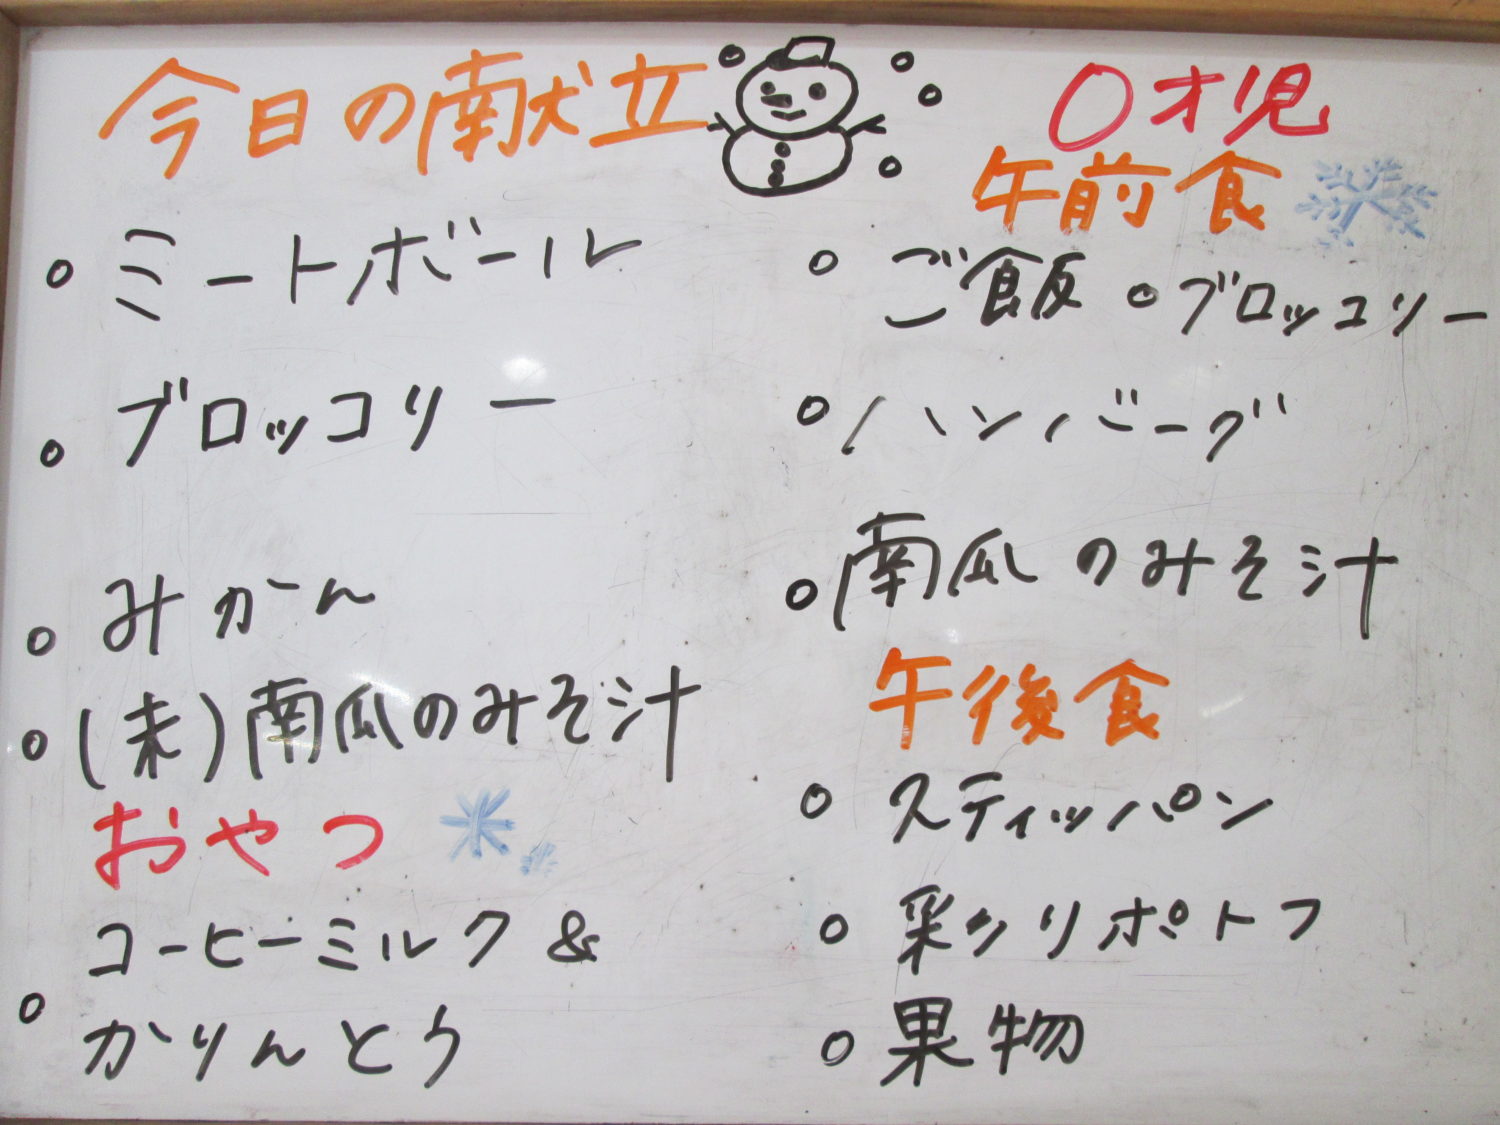 今日の献立
。ミートボール
。ブロッコリー
。みかん
。(未)南瓜のみそ汁
おやつ
コーヒーミルク&
。かりんとう
〇才児
午前食
。ご飯 。ブロッコリー
。ハンバーグ
。南瓜のみそ汁
午後食
。スティッパン
。彩りポトフ
。果物